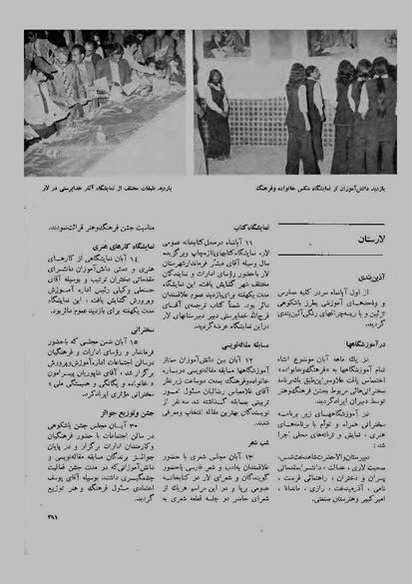 بازدید دانش‌آموزان از نمایشگاه عکس خانواده و فرهنگ
بازدید طبقات مختلف از نمایشگاه آثار خداپرستی در لار
لارستان
آذین‌بندی
از اول آبانماه سردر کلیه مدارس
و واحدهای آموزشی بطرز باشکوهی
تزئین و با ریسه چراغهای رنگی آذین‌بندی
گردید.
در آموزشگاهها
در یک ماهه آبان موضوع انشاء
تمام آموزشگاهها به «فرهنگ وخانواده»
اختصاص یافت علاوه‌براین طبق یک برنامه
سخنرانی‌های مربوط بجشن فرهنگ وهنر
توسط دبیران ایراد گردید.
در آموزشگاههای زیر برنامه
سخنرانی همراه و توأم با برنامه‌های
هنری، نمایش و ترانه‌های محلی اجرا
شد.
دبیرستان والاحضرت شاهدخت شمس،
صحبت لاری، عدالت، دانشسرا مقدماتی
پسران و دختران، راهنمائی فرصت،
نامی، آذرمیدخت، رازی، ماندانا،
امیرکبیر وهنرستان صنعتی.
نمایشگاه کتاب
۱۱ آبانماه درمحل کتابخانه عمومی
لار، نمایشگاه کتابهای تازه چاپ وبرگزیده
سال وسیله آقای مبشر فرماندار شهرستان
لار باحضور رؤسای ادارات و نمایندگان
مختلف شهر گشایش یافت. این نمایشگاه
مدت یکهفته برای بازدید عموم علاقمندان
دائر بود. ضمناً کتاب ترجمه‌ی آقای
فرج‌الله خدابپرستی دبیر دبیرستانهای لار
دراین نمایشگاه عرضه گردید.
مسابقه مقاله‌نویسی
۱۲ آبان بین دانش‌آموزان ممتاز
آموزشگاهها مسابقه مقاله‌نویسی درباره
خانواده وفرهنگ بمدت دوساعت زیرنظر
آقای غلامعباس رضائیان مسئول امور
تربیتی بمسابقه گذاشته شد سه نفر از
نویسندگان بهترین مقاله انتخاب ومعرفی
شدند.
شب شعر
۱۳ آبان مجلس شعری با حضور
علاقمندان بادب و شعر فارسی باحضور
گویندگان و شعرای لار در کتابخانه
عمومی برپا و در این مراسم هریک از
شعرای حاضر دو جلسه قطعه شعری به
مناسبت جشن فرهنگ وهنر قرائت نمودند.
نمایشگاه کارهای هنری
۱۴ آبان نمایشگاهی از کارهای
هنری و دستی دانش‌آموزان دانشسرای
مقدماتی دختران ترتیب و بوسیله آقای
وکیلی رئیس اداره آموزش
وپرورش گشایش یافت، این نمایشگاه
مدت یکهفته برای بازدید عموم دائر بود.
سخنرانی
۱۵ آبان ضمن مجلسی که باحضور
فرماندار و رؤسای ادارات و فرهنگیان
درسالن اجتماعات اداره آموزش وپرورش
برگزار شد، آقای پیرامون
«خانواده و یگانگی و همبستگی ملی»
سخنرانی مؤثری ایراد کرد.
جشن وتوزیع جوائز
۳۰ آبان مجلس جشن باشکوهی
در سالن اجتماعات با حضور فرهنگیان
وکارمندان ادارات برگزار و در پایان
جوائز برندگان مسابقه مقاله‌نویسی و
دانش‌آموزانی که در مدت جشن فعالیت
چشمگیری داشتند، بوسیله آقای یوسف
اعتمادی مسئول فرهنگ و هنر توزیع
گردید.
۳۹۱